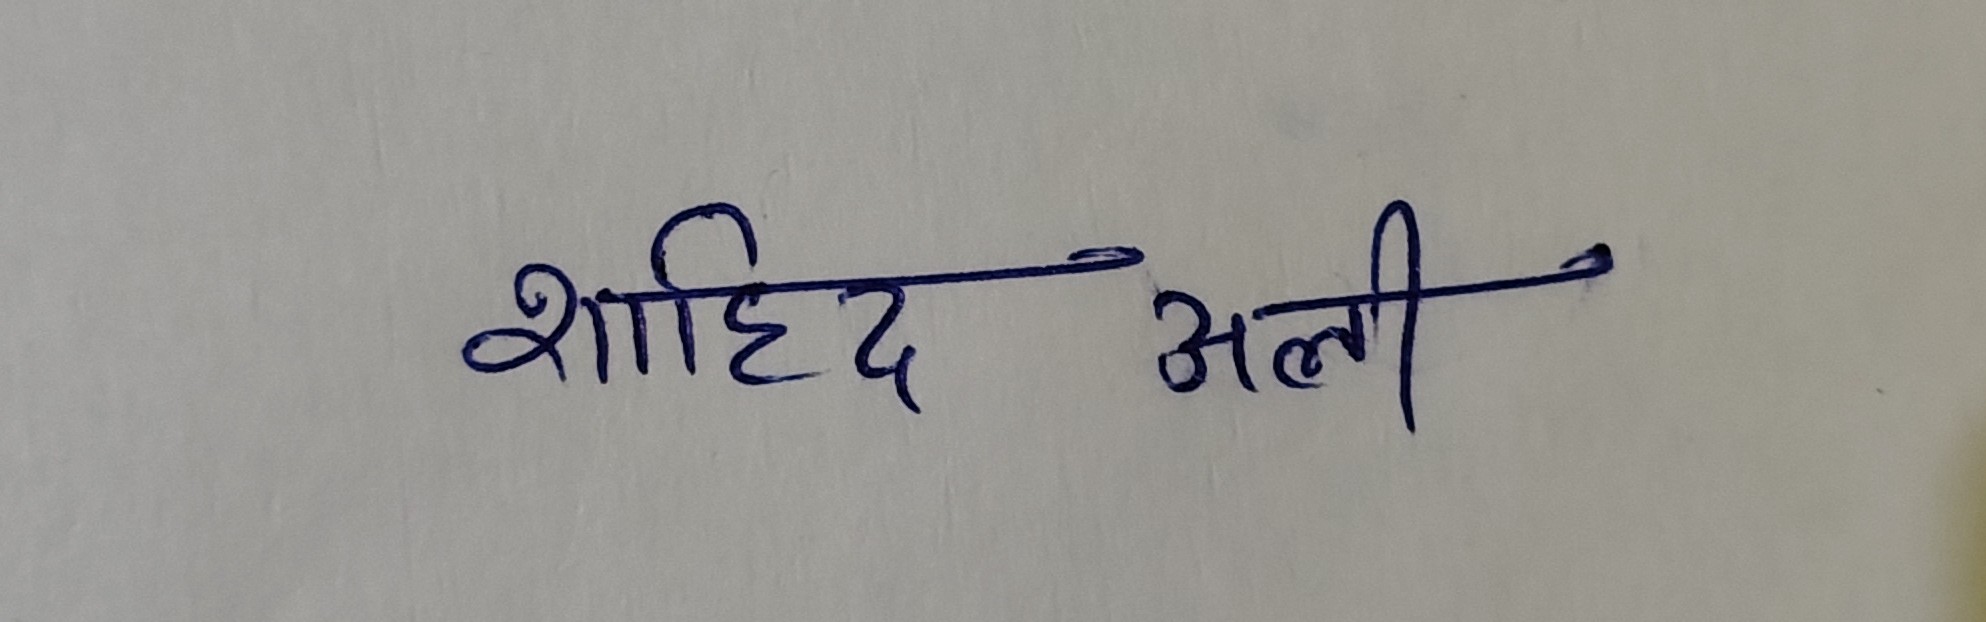 शाहिद अली